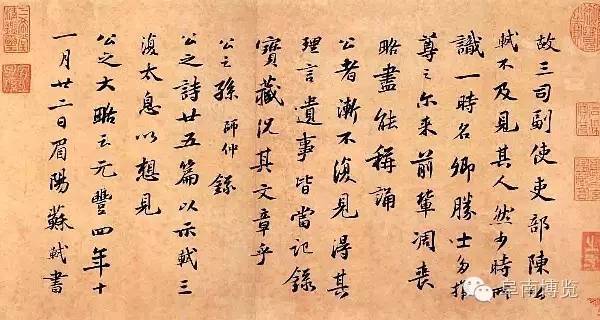 故三司副使吏部陳公
軾不及見其人然少時所
識一時名卿勝士多推
尊之尔来前輩凋喪
略盡能稱誦
公者漸不復見得其
理言遺事皆當記錄
寶藏況其文章乎
公之孫師仲錄
公之詩廿五篇以示軾三
復太息以想見
公之大略云元豐四年十
一月廿二日眉陽蘇軾書
阜南博览